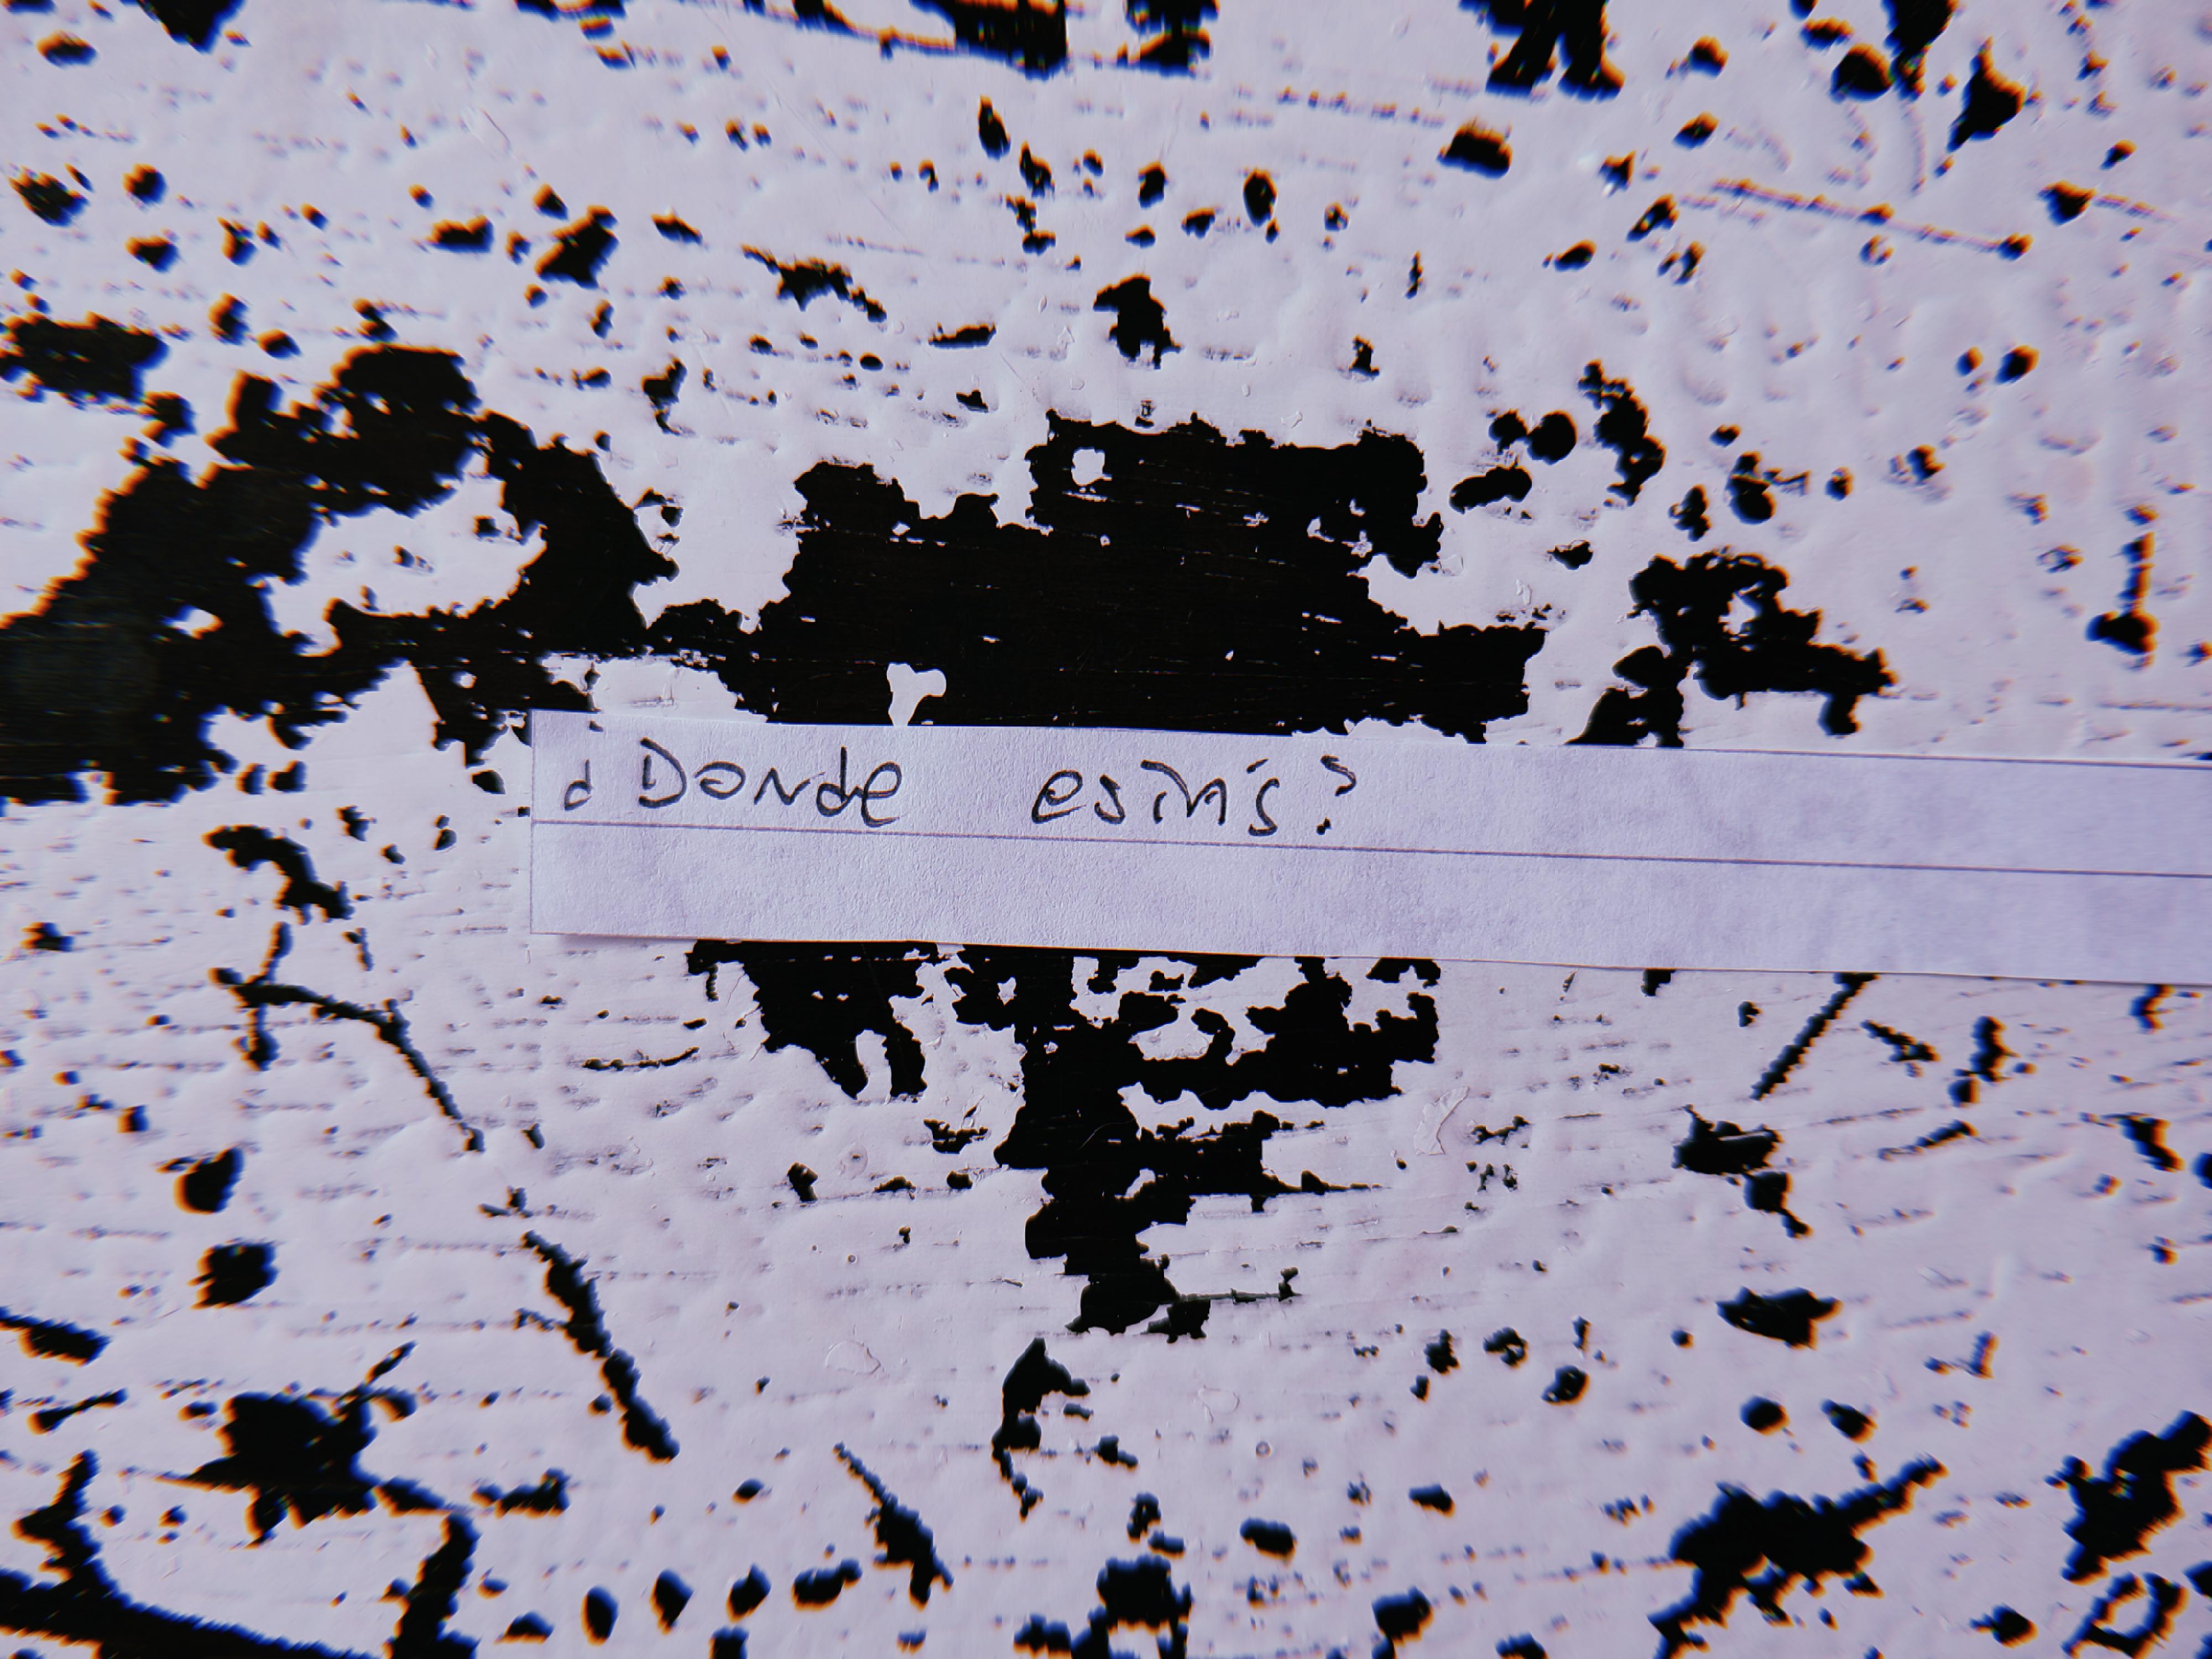 ¿Donde estás?